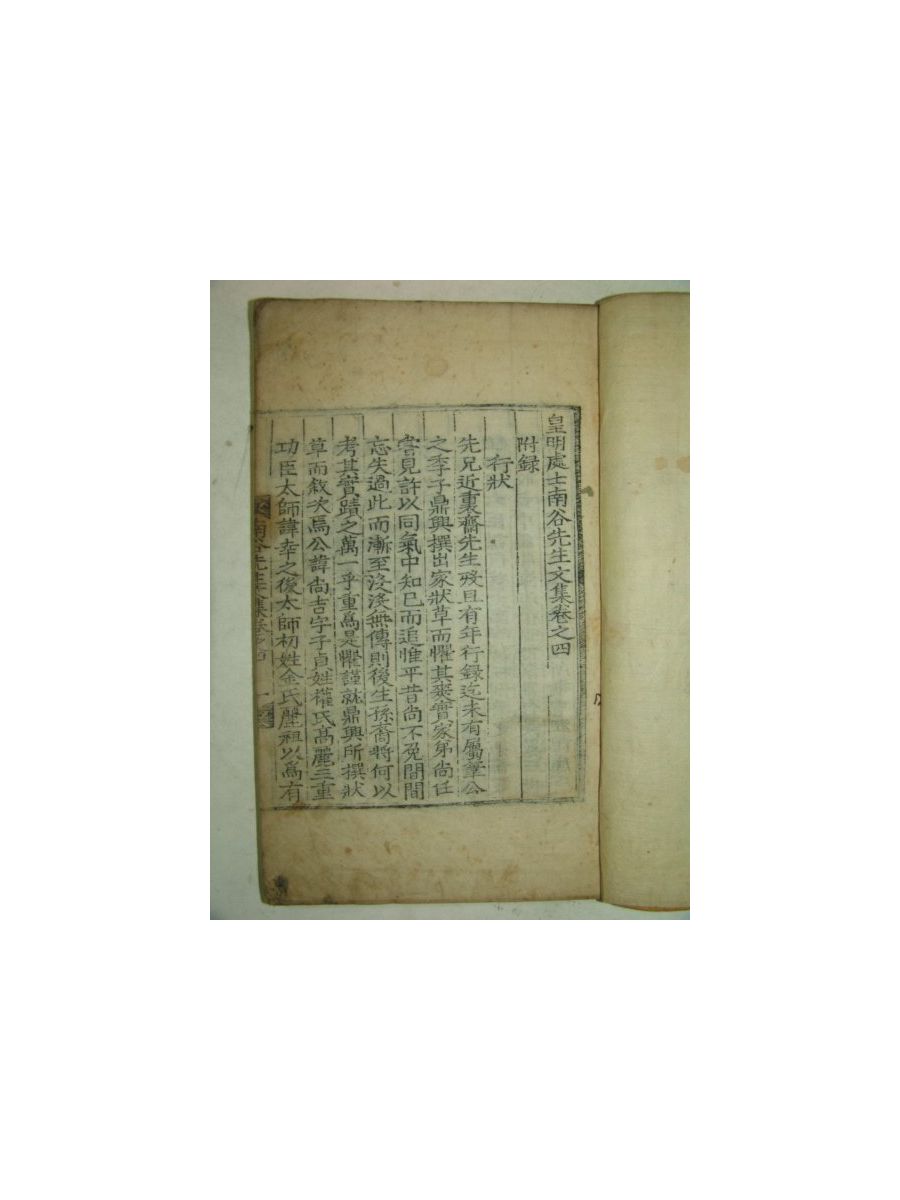 皇明處士南谷先生文集卷之四
附錄
行狀
先兄近裏齋先生歿且有年行錄迄未有屬筆公
之季子鼎興撰出家狀草而懼其爽實家弟尙任
嘗見許以同氣中知己而追惟平昔尙不免間間
忘失過此而漸至沒沒無傳則後生孫裔將何以
考其實蹟之萬一乎重爲是懼謹就鼎興所撰狀
草而敍次焉公諱尙吉字子貞姓權氏高麗三重
功臣太師諱幸之後太師初姓金氏麗祖以爲有
南谷先生集卷之四
一